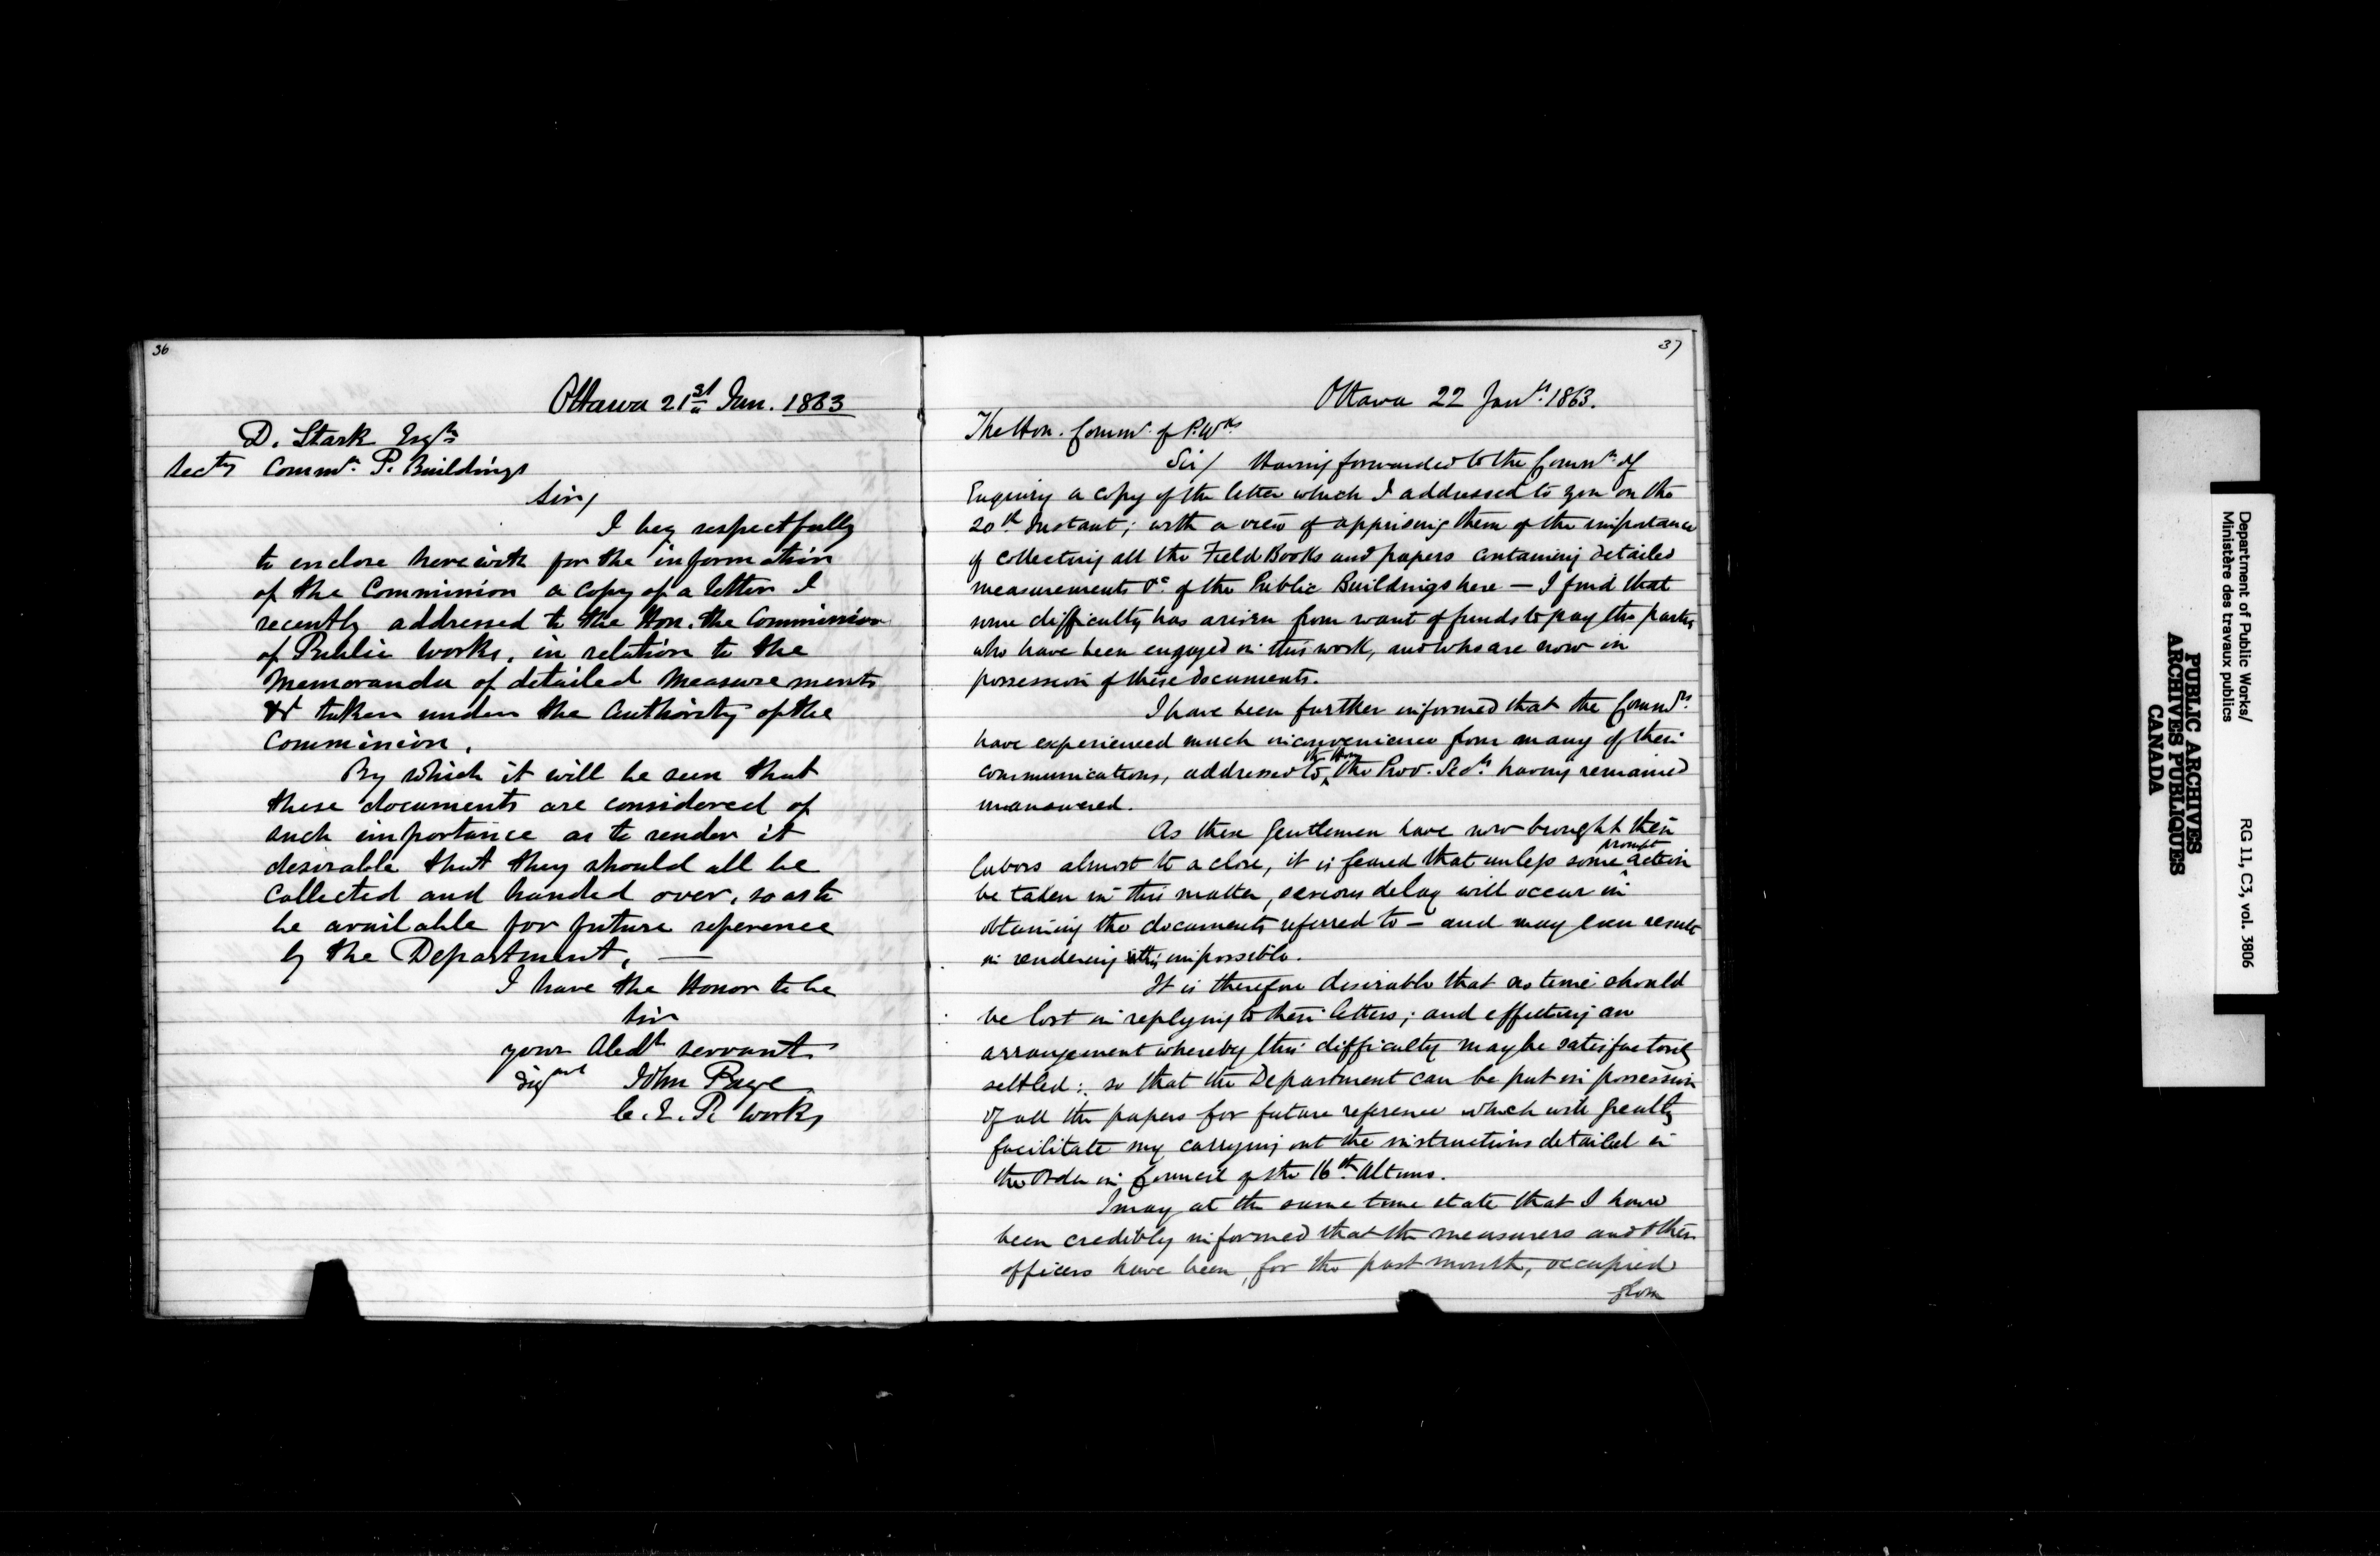 36
Ottawa 21st Jan. 1863
D. Stark Esqre
Secty Commn. P. Buildings
Sir,
I beg respectfully
to enclose herewith for the information
of the Commission a copy of a letter I
recently addressed to the Hon. the Commissioner
of Public Works, in relation to the
Memoranda of detailed Measurements
&c taken under the Authority of the
Commission.
By which it will be seen that
these documents are considered of
such importance as to render it
desirable that they should all be
collected and handed over, so as to
be available for future reference
by the Department. —
I have the Honor to be
Sir
your Obedt servant
Signed John Page
C. E. P. Works
37
Ottawa 22 Jany. 1863.
The Hon. Commr. of P. Wks
Sir / Having forwarded to the Commn. of
Enquiry a copy of the letter which I addressed to you on the
20th Instant; with a view of apprising them of the importance
of collecting all the Field Books and papers containing detailed
measurements &c. of the Public Buildings here — I find that
some difficulty has arisen from want of funds to pay the parties
who have been engaged in this work, and who are now in
possession of these documents.
I have been further informed that the Commrs.
have experienced much inconvenience from many of their
communications, addressed to the Hon the Prov. Secy. having remained
unanswered.
As these Gentlemen have now brought their
labors almost to a close, it is feared that unless some prompt action
be taken in this matter, serious delay will occur in
obtaining the documents referred to — and may even result
in rendering this impossible.
It is therefore desirable that no time should
be lost in replying to their letters; and effecting an
arrangement whereby this difficulty may be satisfactorily
settled: so that the Department can be put in possession
of all the papers for future reference which will greatly
facilitate my carrying out the instructions detailed in
the Order in Council of the 16th. Ultimo.
I may at the same time state that I have
been credibly informed that the measurers and other
officers have been, for the past month, occupied
from
Department of Public Works/
Ministère des travaux publics
RG 11, C3, vol. 3806
PUBLIC ARCHIVES
ARCHIVES PUBLIQUES
CANADA